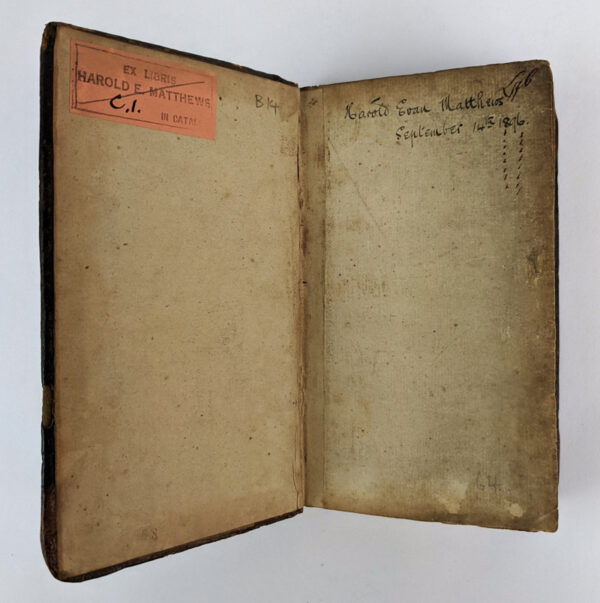 EX LIBRIS
HAROLD E. MATTHEWS
C.1.
IN CATAL
B 14
Harold Evan Matthews
September 14th 1896.
64.